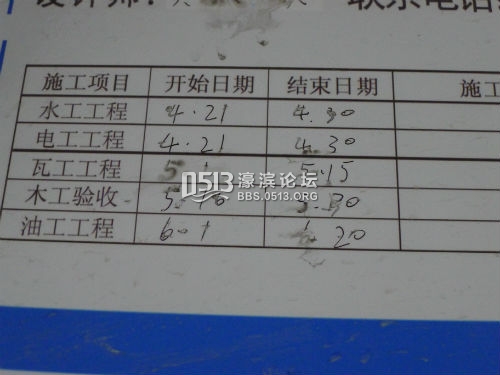 设计师: 联系电话
施工项目 开始日期 结束日期 施工
水工工程 4.21 4.30
电工工程 4.21 4.30
瓦工工程 5.1 5.15
木工验收 5.30
油工工程 6.1 6.20
0513 濠滨论坛
BBS.0513.ORG